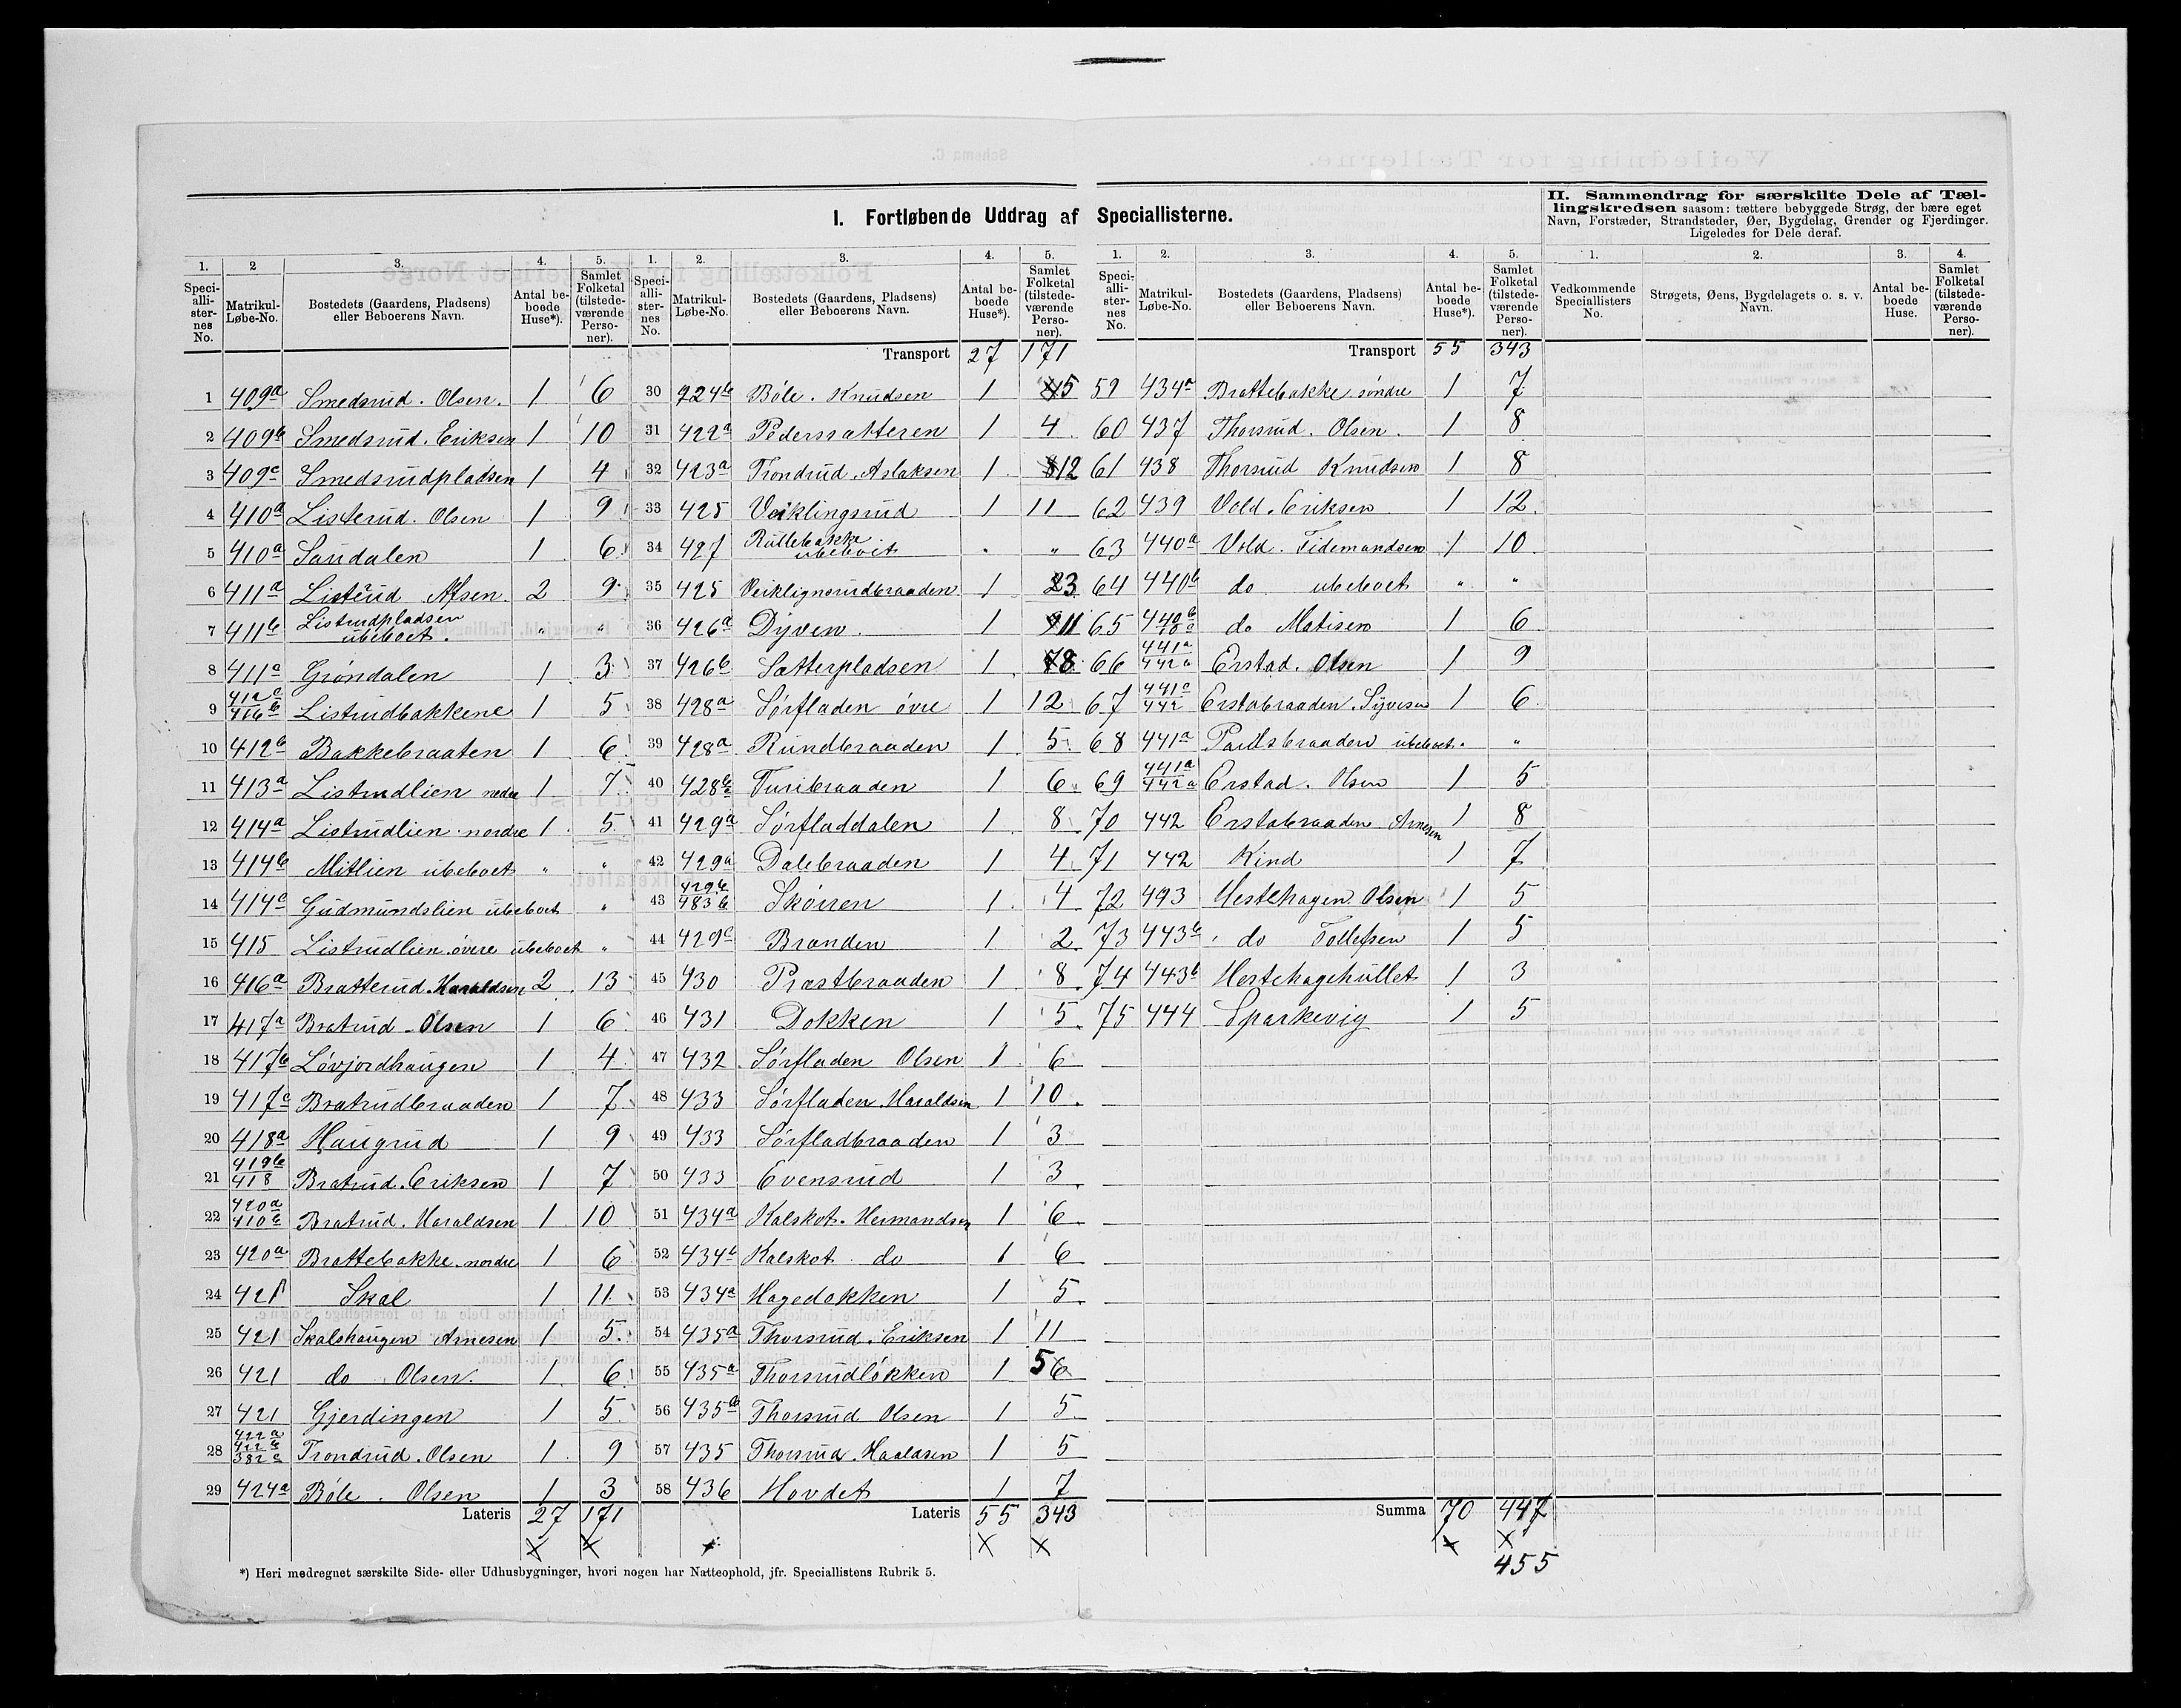 I. Fortløbende Uddrag af Speciallisterne.
II. Sammendrag for særskilte Dele af Tæl-
lingskredsen saasom: tættere bebyggede Strøg, der bære eget
Navn, Forstæder, Strandsteder, Øer, Bygdelag, Grender og Fjerdinger.
Ligeledes for Dele deraf.
1. Speci-alli-ster-nes No. 2 Matrikul-Løbe-No. 3. Bostedets (Gaardens, Pladsens) eller Beboerens Navn. 4. Antal be-boede Huse*). 5. Samlet Folketal (tilstede-værende Perso-ner).
1 409a Smedsrud. Olsen. 1 6
2 409b Smedsrud. Eriksen 1 10
3 409c Smedsrudpladsen 1 4
4 410a Listerud. Olsen 1 9
5 410a Sandalen 1 6
6 411a Listerud 2 9
7 411b Listrudpladsen ubeboet. " "
8 411a Grøndalen 1 3
9 Listrudbakkene 1 5
10 412b Bakkebraaten 1 6
11 413a Listrudlien nedre 1 7
12 414a Listrudlien nordre 1 5
13 414b Mitlien ubeboet " "
14 414c Gudmundslien ubeboet "
15 415 Listrudlien øvre ubeboet "
16 416a Bratterud. Haraldsen 2 13
17 417a Bratrud Olsen 1 6
18 417b Løvjordhaugen 1 4
19 417c Bratrudbraaden 1 7
20 418a Haugrud 1 9
21 419b 418 Bratrud. Eriksen 1 7
22 420a 410b Bratrud. Haraldsen 1 10
23 420a Brattebakke. nordre 1 6
24 421 Skal 1 11
25 421 Skalshaugen Arnesen 1 5
26 421 do Olsen. 1 6
27 421 Gjerdingen 1 5
28 422a 422b 382c Trondrud. Olsen 1 9
29 424a Bøle. Olsen 1 3
Lateris 27 171
1. Speci-alli-ster-nes No. 2. Matrikul-Løbe-No. 3. Bostedets (Gaardens, Pladsens) eller Beboerens Navn. 4. Antal be-boede Huse*). 5. Samlet Folketal (tilstede-værende Perso-ner).
Transport 27 171
30 424b Bøle. Knudsen 1 5
31 422a Pedersratteren 1 4
32 423a Trondrud. Aslaksen 1 12
33 425 Veiklingsrud 1 11
34 427 Rullebakke ubeboet . "
35 425 Veiklignsrudbraaden 1 3
36 426a Dyven 1 11
37 426b Sætterpladsen 1 8
38 428a Sørfladen øvre 1 12
39 428a Rundbraaden 1 5
40 428b Turibraaden 1 6
41 429a Sørfladdalen 1 8
42 429a Dalebraaden 1 4
43 429b 483b Skøiren 1 4
44 429c Branden 1 2
45 430 Præstbraaden 1 8
46 431 Dokken 1 5
47 432 Sørfladen Olsen 1 6
48 433 Sørfladen. Haraldsen 1 10
49 433 Sørfladbraaden 1 3
50 433 Evensrud 1 3
51 434a Kalskot. Hermandsen 1 6
52 434b Kalskot do 1 6
53 434a Hagedokken 1 5
54 435a Thorsrud. Eriksen 1 11
55 435a Thorsrudløkken 1 56
56 435b Thorsrud Olsen 1 5
57 435 Thorsrud. Haaldsen 1 5
58 436 Hovdet 1 7
Lateris 55 343
1. Speci-alli-ster-nes No. 2. Matrikul-Løbe-No. 3. Bostedets (Gaardens, Pladsens) eller Beboerens Navn. 4. Antal be-boede Huse*). 5. Samlet Folketal (tilstede-værende Perso-ner).
Transport 55 343
59 434a Brattebakke. søndre 1 7
60 437 Thorsrud. Olsen. 1 8
61 438 Thorsrud Knudsen 1 8
62 439 Vold. Eriksen 1 12
63 440a Vold. Tidemandsen 1 10
64 440b do ubeboet " "
65 do Matisen 1 6
66 441a 442a Erstad. Olsen 1 9
67 441c 442 Erstabraaden. Syversen 1 6
68 441a Paulsbraaden ubeboet. "
69 441a 442a Erstad. Olsen 1 5
70 442 Erstabraaden Arnesen 1 8
71 442 Kind 1 7
72 493 Hestehagen Olsen 1 5
73 443b do Tollefsen 1 5
74 443b Hestehagehullet 1 3
75 444 Sparkevig 1 5
Summa 70 447
455
1. Vedkommende Speciallisters No. 2. Strøgets, Øens, Bygdelagets o. s. v. Navn. 3. Antal be-boede Huse. 4. Samlet Folketal (tilstede-værende Perso-ner).
*) Heri medregnet særskilte Side- eller Udhusbygninger, hvori nogen har Natteophold, jfr. Speciallistens Rubrik 5.